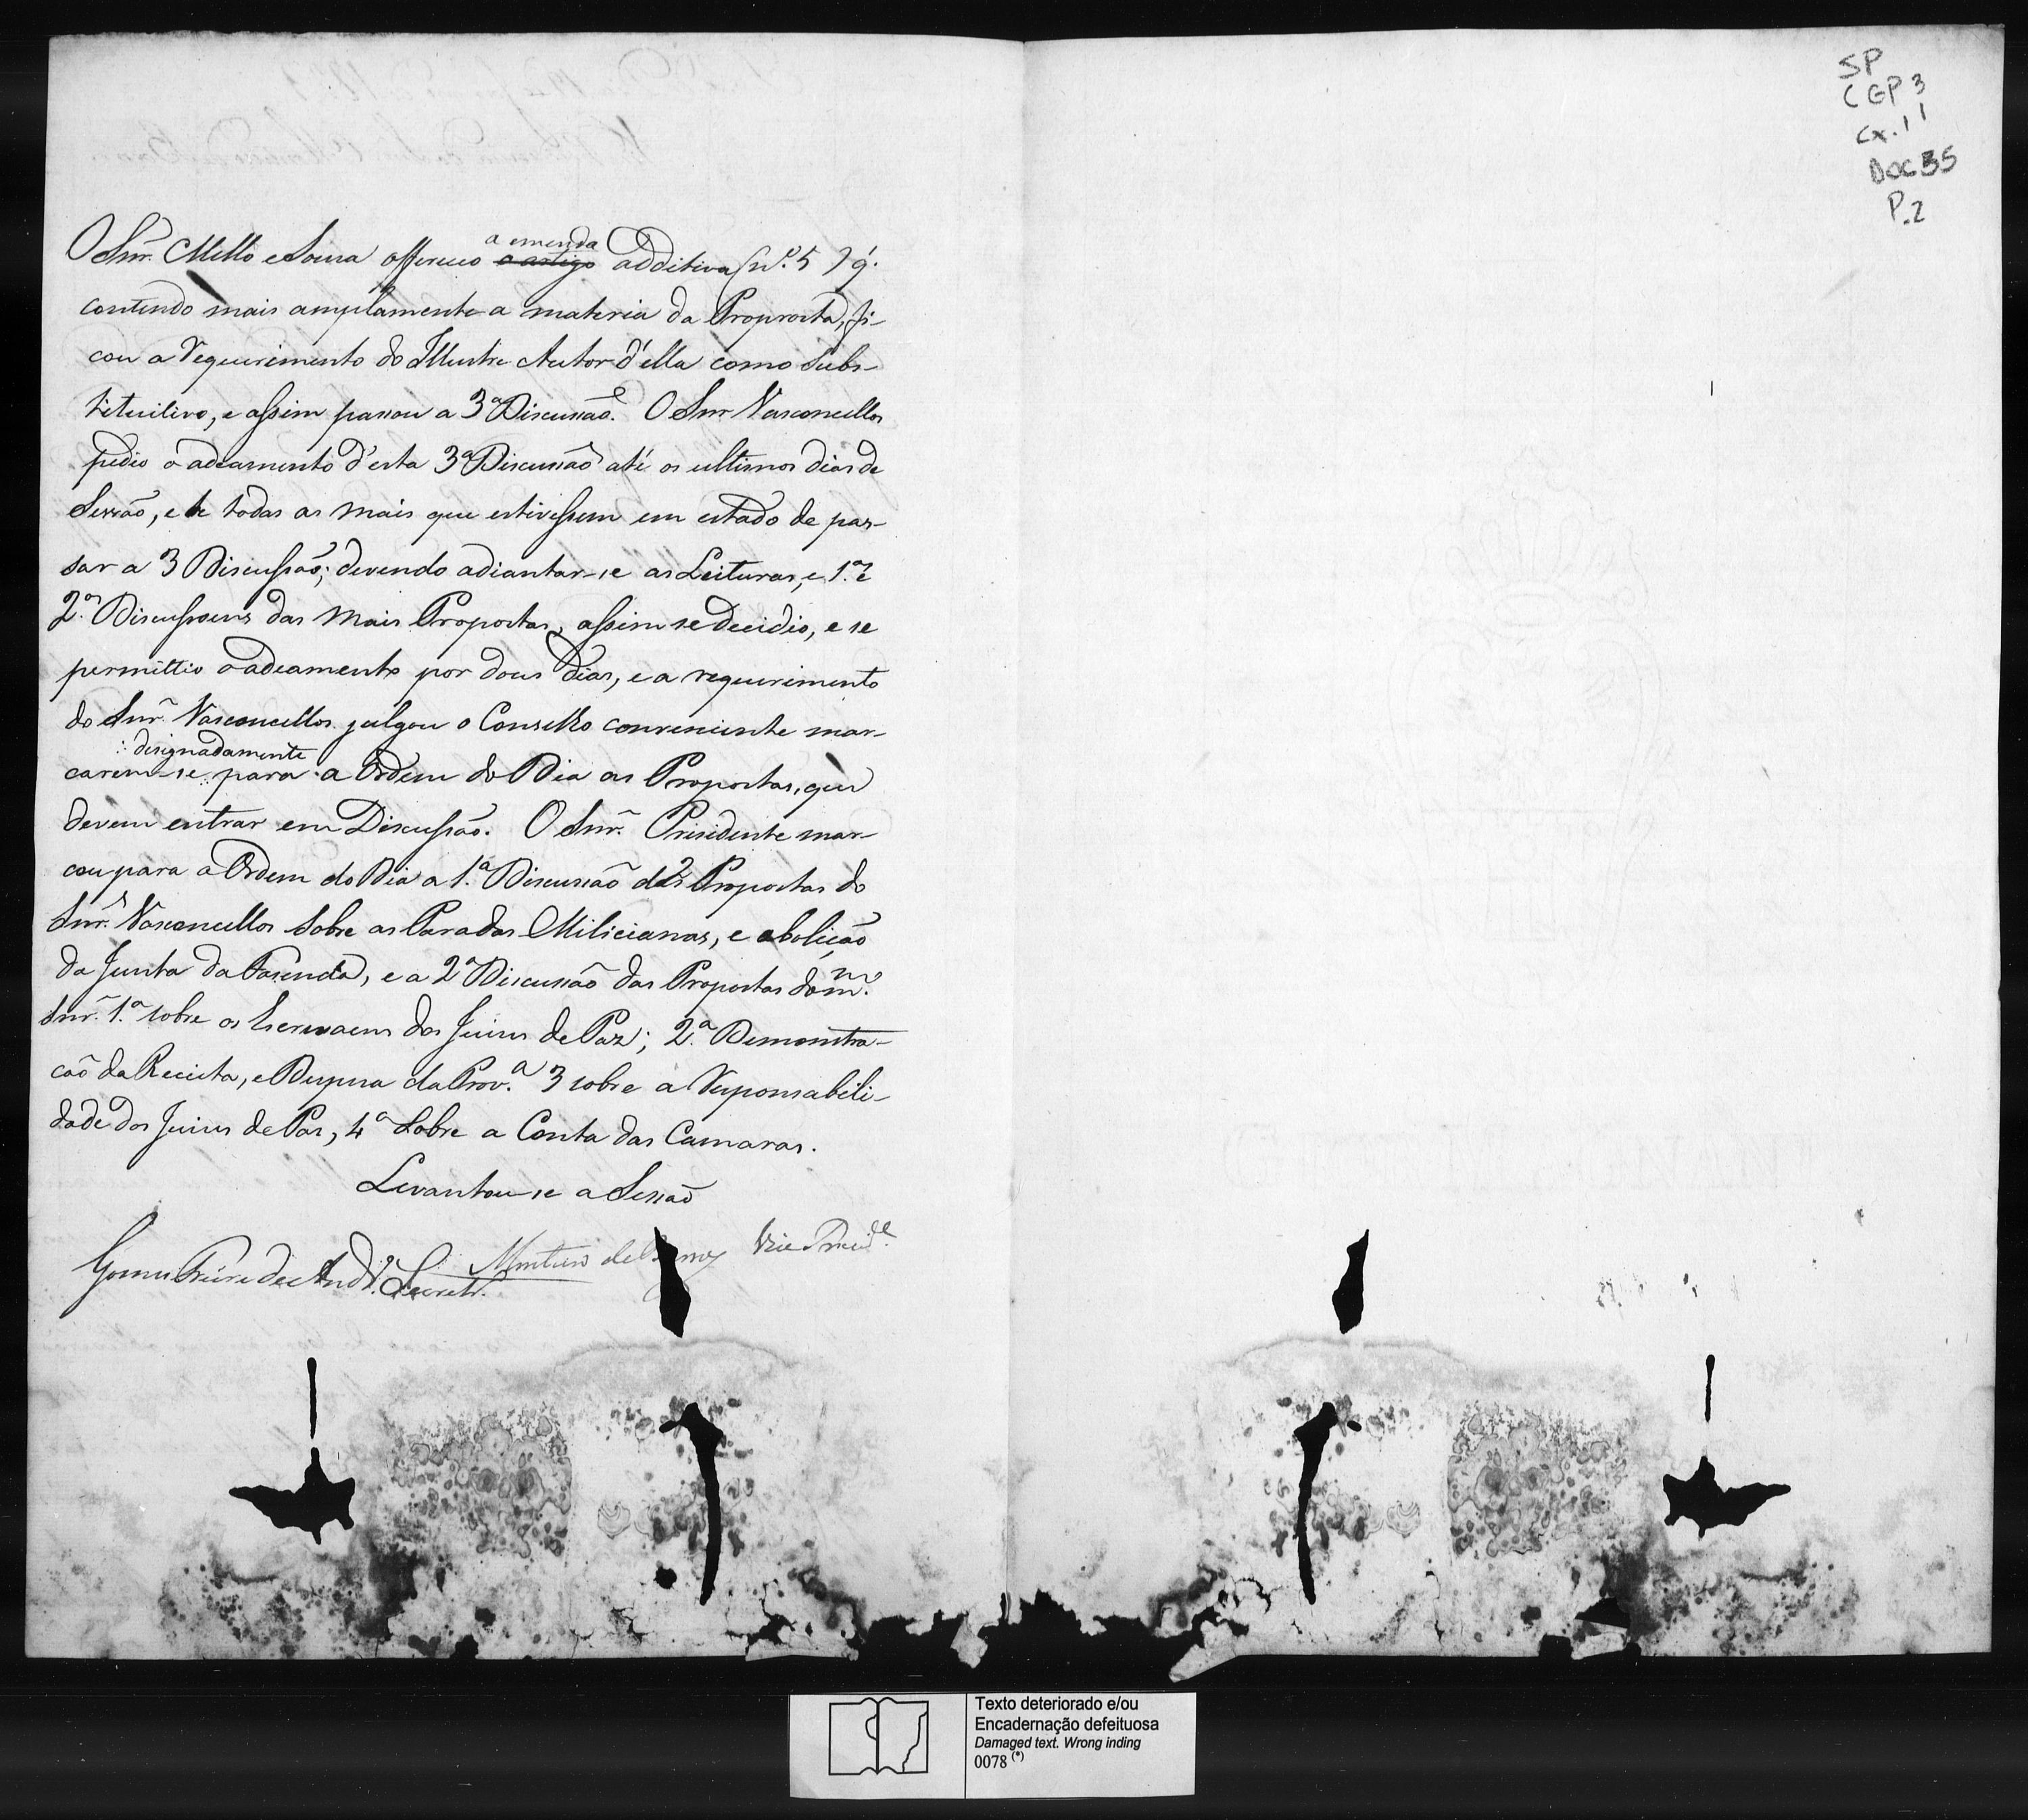 SP
CGP 3
Cx. 11
DOC 35
P. 2
O Snr. Mello e Souza offereceo a emenda o artigo additiva (N.º 5) q.
contendo mais amplamente a materia da Proprosta, fi-
cou a requerimento do Illustre Autor d'ella como subs-
tituitivo, e assim passou a 3ª Discussaõ. O Snr Vasconcellos
pedio o adeamento d'esta 3ª Discussaõ até os ultimos dias de
Sessaõ, e de todas as mais que estivessem em estado de pas-
sar a 3 Discussaõ; devendo adiantar-se as Leituras, e 1.ª e
2.ª Discussoens das mais Propostas, assim se decidio, e se
permittio o adeamento por dous dias, e a requerimento
do Snr. Vasconcellos julgou o Conselho conveniente mar-
designadamente
carem-se para a Ordem do Dia as Propostas, que
devem entrar em Discussaõ. O Snr. Presidente mar-
cou para a Ordem do Dia a 1.ª Discussaõ das 2 Propostas do
Snr. Vasconcellos sobre as Paradas Milicianas, e aboliçaõ
da Junta da Fasenda, e a 2ª Discussaõ das Propostas do m.mo
Snr. 1.ª sobre os Escrivaens dos Juizes de Paz; 2.ª Demonstra-
caõ da Receita, e Despesa da Prov.ª 3 sobre a Responsabili-
dade dos Juizes de Pas, 4ª Sobre a Conta das Camaras.
Levantou-se a Sessaõ
Monteiro de Vice Presid.e
Gomes Freire de Andr.e Secretr.
Texto deteriorado e/ou
Encadernação defeituosa
Damaged text. Wrong inding
0078 (*)